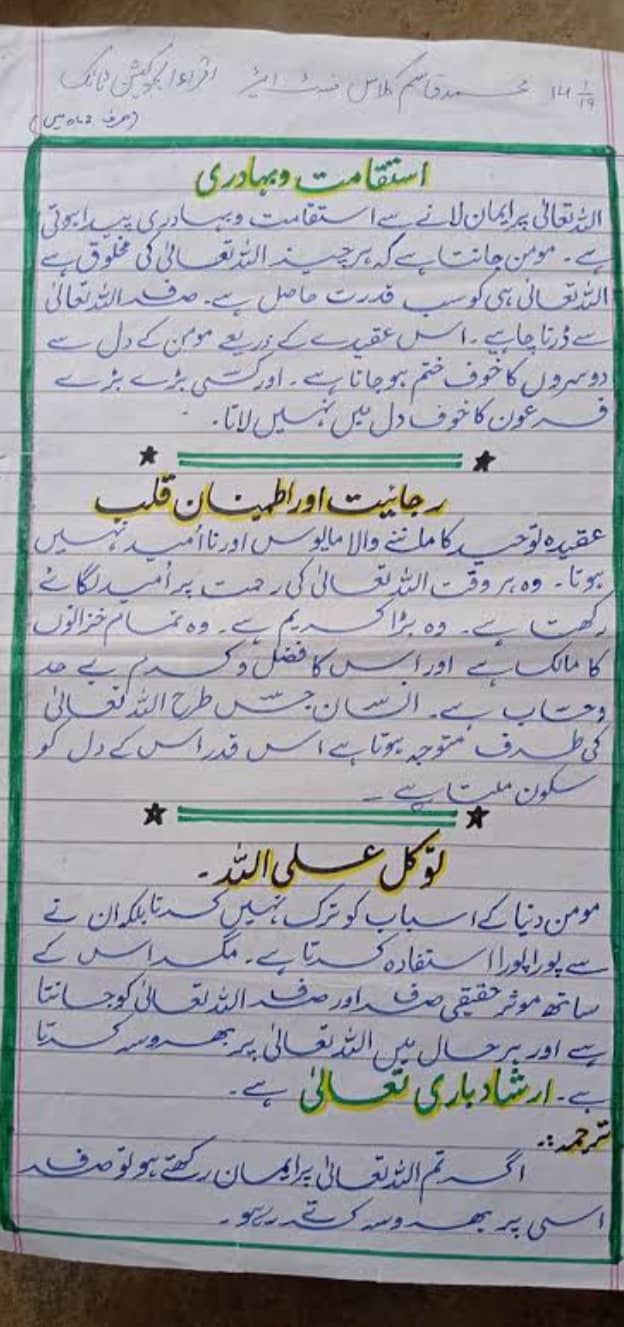 ۱۴ ۱/۱۹ محمد قاسم کلاس فسٹ ائیر اقراء ایجوکیشن ٹانک
(صرف 2 ماہ میں)
استقامت و بہادری
اللہ تعالیٰ پر ایمان لانے سے استقامت و بہادری پیدا ہوتی
ہے۔ مومن جانتا ہے کہ ہر چیز اللہ تعالیٰ کی مخلوق ہے
اللہ تعالیٰ ہی کو سب قدرت حاصل ہے۔ صرف اللہ تعالیٰ
سے ڈرنا چاہیے۔ اس عقیدے کے ذریعے مومن کے دل سے
دوسروں کا خوف ختم ہو جاتا ہے۔ اور کسی بڑے بڑے
فرعون کا خوف دل میں نہیں لاتا۔
رجائیت اور اطمینان قلب
عقیدہ توحید کا ماننے والا مایوس اور نا اُمید نہیں
ہوتا۔ وہ ہر وقت اللہ تعالیٰ کی رحمت پر اُمید لگائے
رکھتا ہے۔ وہ بڑا کریم ہے۔ وہ تمام خزانوں
کا مالک ہے اور اس کا فضل و کرم بے حد
وحساب ہے۔ انسان جس طرح اللہ تعالیٰ
کی طرف متوجہ ہوتا ہے اس قدر اس کے دل کو
سکون ملتا ہے۔
توکل علی اللہ۔
مومن دنیا کے اسباب کو ترک نہیں کرتا بلکہ ان نے
سے پورا پورا استفادہ کرتا ہے۔ مگر اس کے
ساتھ موثر حقیقی صرف اور صرف اللہ تعالیٰ کو جانتا
ہے اور ہر حال میں اللہ تعالیٰ پر بھروسہ کرتا
ہے۔ ارشاد باری تعالیٰ ہے۔
ترجمہ:۔
اگر تم اللہ تعالیٰ پر ایمان رکھتے ہو تو صرف
اسی پر بھروسہ کرتے رہو۔